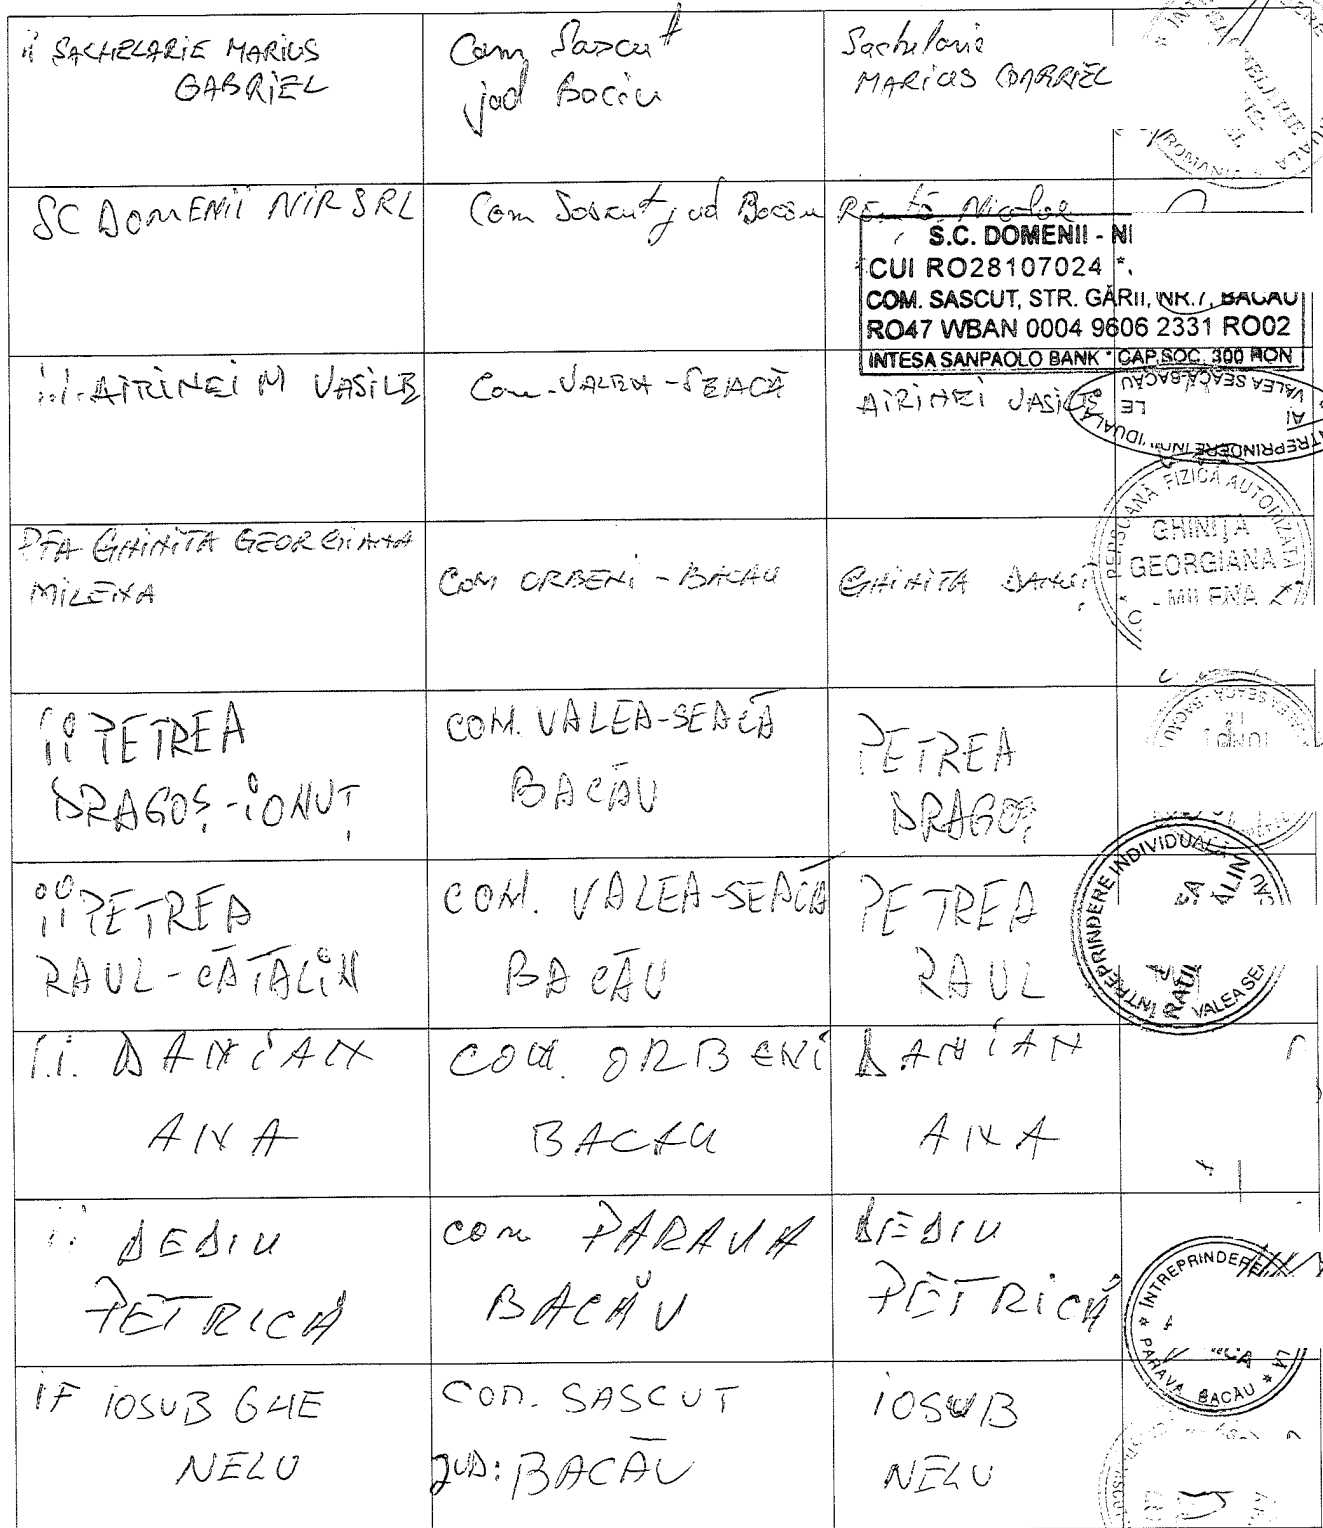 ii SACHELARIE MARIUS
GABRIEL
Com Sascut
jud Bacău
Sachelarie
MARIUS GABRIEL
SC DOMENII NIR SRL
Com Sascut jud Bacău
Nicolae
S.C. DOMENII - NI
CUI RO28107024 *
COM. SASCUT, STR. GĂRII, NR.7, BACAU
RO47 WBAN 0004 9606 2331 RO02
INTESA SANPAOLO BANK * CAP.SOC. 300 RON
i.i. AIRINEI M VASILE
Com. VALEA-SEACĂ
AIRINEI VASILE
VALEA SEACĂ-BACĂU
PFA GHINITA GEORGIANA
MILENA
COM ORBENI - BACAU
GHINITA DANUȚ
PERSOANĂ FIZICĂ AUTORIZATĂ
GHINIȚĂ
GEORGIANA
- MILENA
ii PETREA
DRAGOȘ-IONUȚ
COM. VALEA-SEACĂ
BACĂU
PETREA
DRAGOȘ
ii PETREA
RAUL-CĂTĂLIN
COM. VALEA-SEACĂ
BACĂU
PETREA
RAUL
ÎNTREPRINDERE INDIVIDUALĂ
RAUL
i.i. DAMIAN
ANA
COM. ORBENI
BACAU
DAMIAN
ANA
ii DEDIU
PETRICĂ
com PARAVA
BACĂU
DEDIU
PETRICĂ
* ÎNTREPRINDERE
PARAVA BACĂU *
IF IOSUB GHE
NELU
COM. SASCUT
JUD: BACĂU
IOSUB
NELU